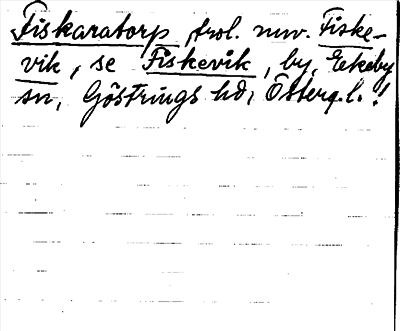 Fiskaratorp, trol. nuv. Fiske-
vik, se Fiskevik, by, Ekeby
sn, Göstrings hd, Österg. l.!